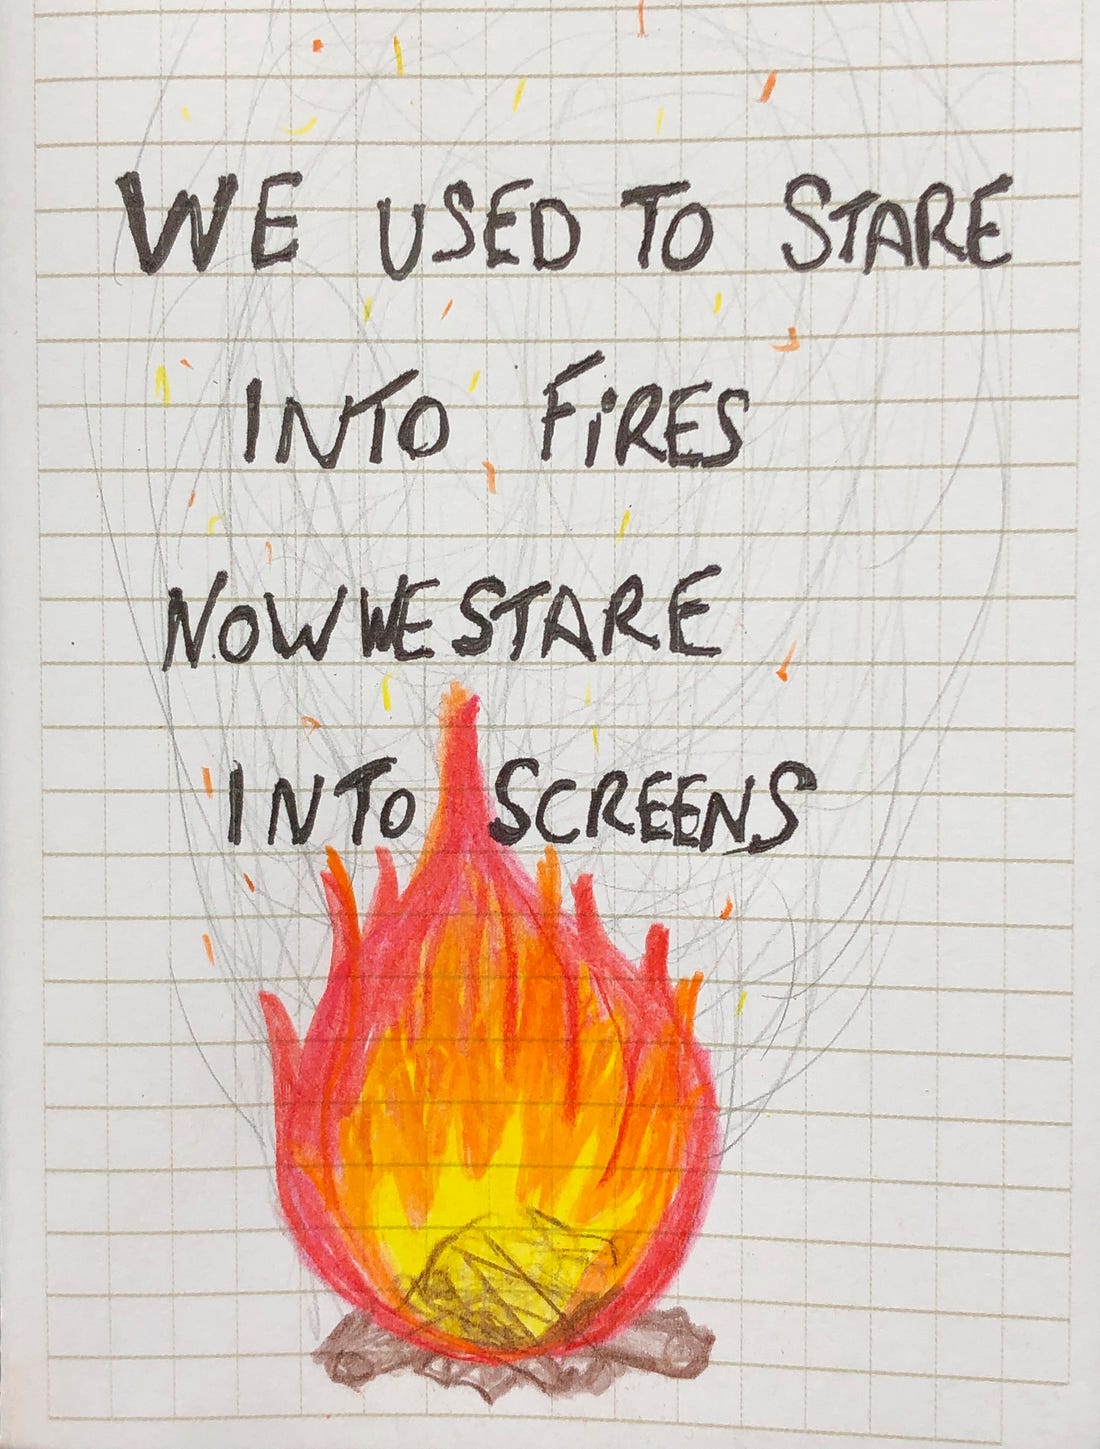 WE USED TO STARE
INTO FiRES
NOW WE STARE
INTO SCREENS